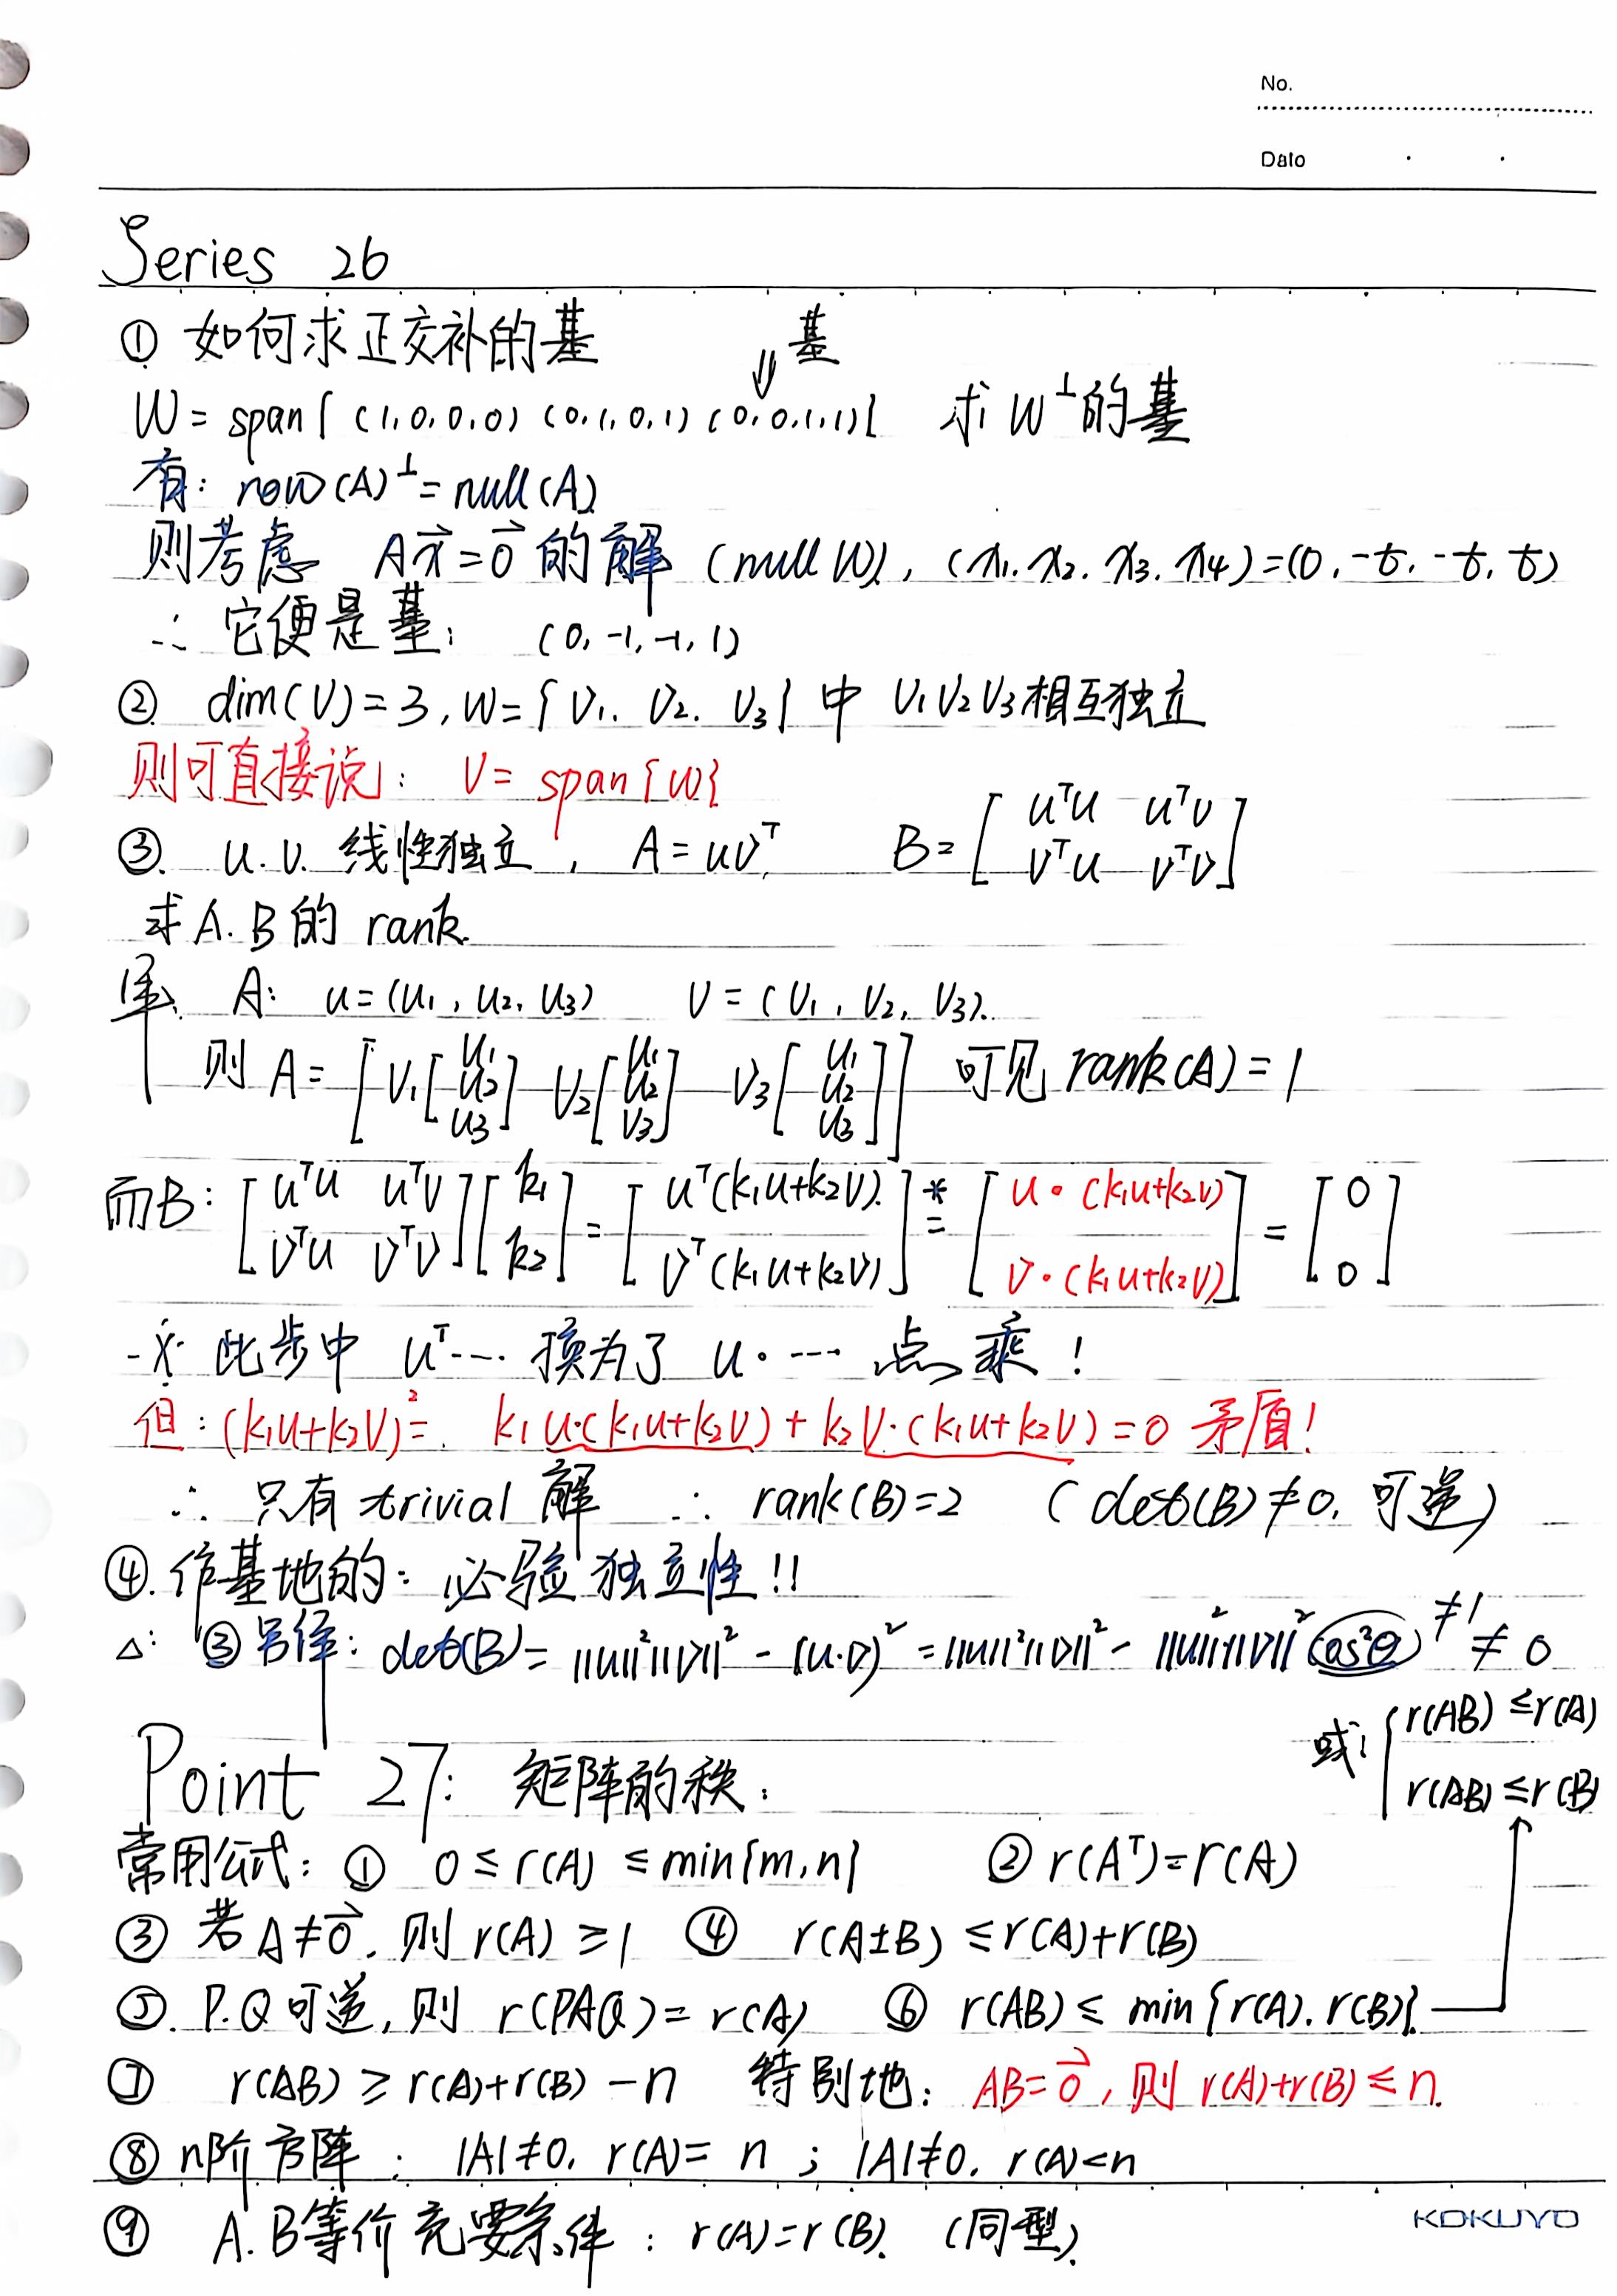 No.
Date
Series 26
① 如何求正交补的基
基
⇓
W = span{ (1,0,0,0) (0,1,0,1) (0,0,1,1)} 求 W⊥的基
有: row(A)⊥ = null(A)
则考虑 Ax⃗ = 0⃗ 的解 (null W), (x1. x2. x3. x4)=(0, -t, -t, t)
∴ 它便是基: (0, -1, -1, 1)
② dim(V) = 3, W = {V1. V2. V3} 中 V1V2V3相互独立
则可直接说: V = span{W}
③. u.v. 线性独立, A = uvᵀ, B = [uᵀu uᵀv; vᵀu vᵀv]
求A.B的 rank.
A: u = (u1, u2, u3) V = (V1, V2, V3).
则 A = [V1[u1 u2 u3] V2[u1 u2 V3] V3[u1 u2 u3]] 可见 rank(A) = 1
而B: [uᵀu uᵀv; vᵀu vᵀv][k1; k2] = [uᵀ(k1u+k2v). ; vᵀ(k1u+k2v)] *= [u·(k1u+k2v) ; v·(k1u+k2v)] = [0; 0]
※ 此步中 uᵀ… 换为了 u·… 点乘!
但: (k1u+k2v)² = k1u·(k1u+k2v) + k2v·(k1u+k2v) = 0 矛盾!
∴ 只有 trivial 解 ∴ rank(B)=2 (det(B)≠0, 可逆)
④. 作基地的: 必验独立性!!
△: ③另解: det(B) = ||u||²||v||² - (u·v)² = ||u||²||v||² - ||u||²||v||² cos²θ ≠1 ≠ 0
Point 27: 矩阵的秩:
或: { r(AB) ≤ r(A)
r(AB) ≤ r(B)
常用公式: ① 0 ≤ r(A) ≤ min{m,n} ② r(Aᵀ)=r(A)
③ 若 A≠0⃗, 则 r(A) ≥ 1 ④ r(A±B) ≤ r(A)+r(B)
⑤. P.Q可逆, 则 r(PAQ) = r(A) ⑥ r(AB) ≤ min{r(A). r(B)}.
⑦ r(AB) ≥ r(A)+r(B) - n 特别地: AB=0⃗, 则 r(A)+r(B) ≤ n.
⑧ n阶方阵: |A|≠0, r(A) = n ; |A|≠0, r(A)<n
⑨ A.B等价充要条件: r(A)=r(B). (同型).
KOKUYO